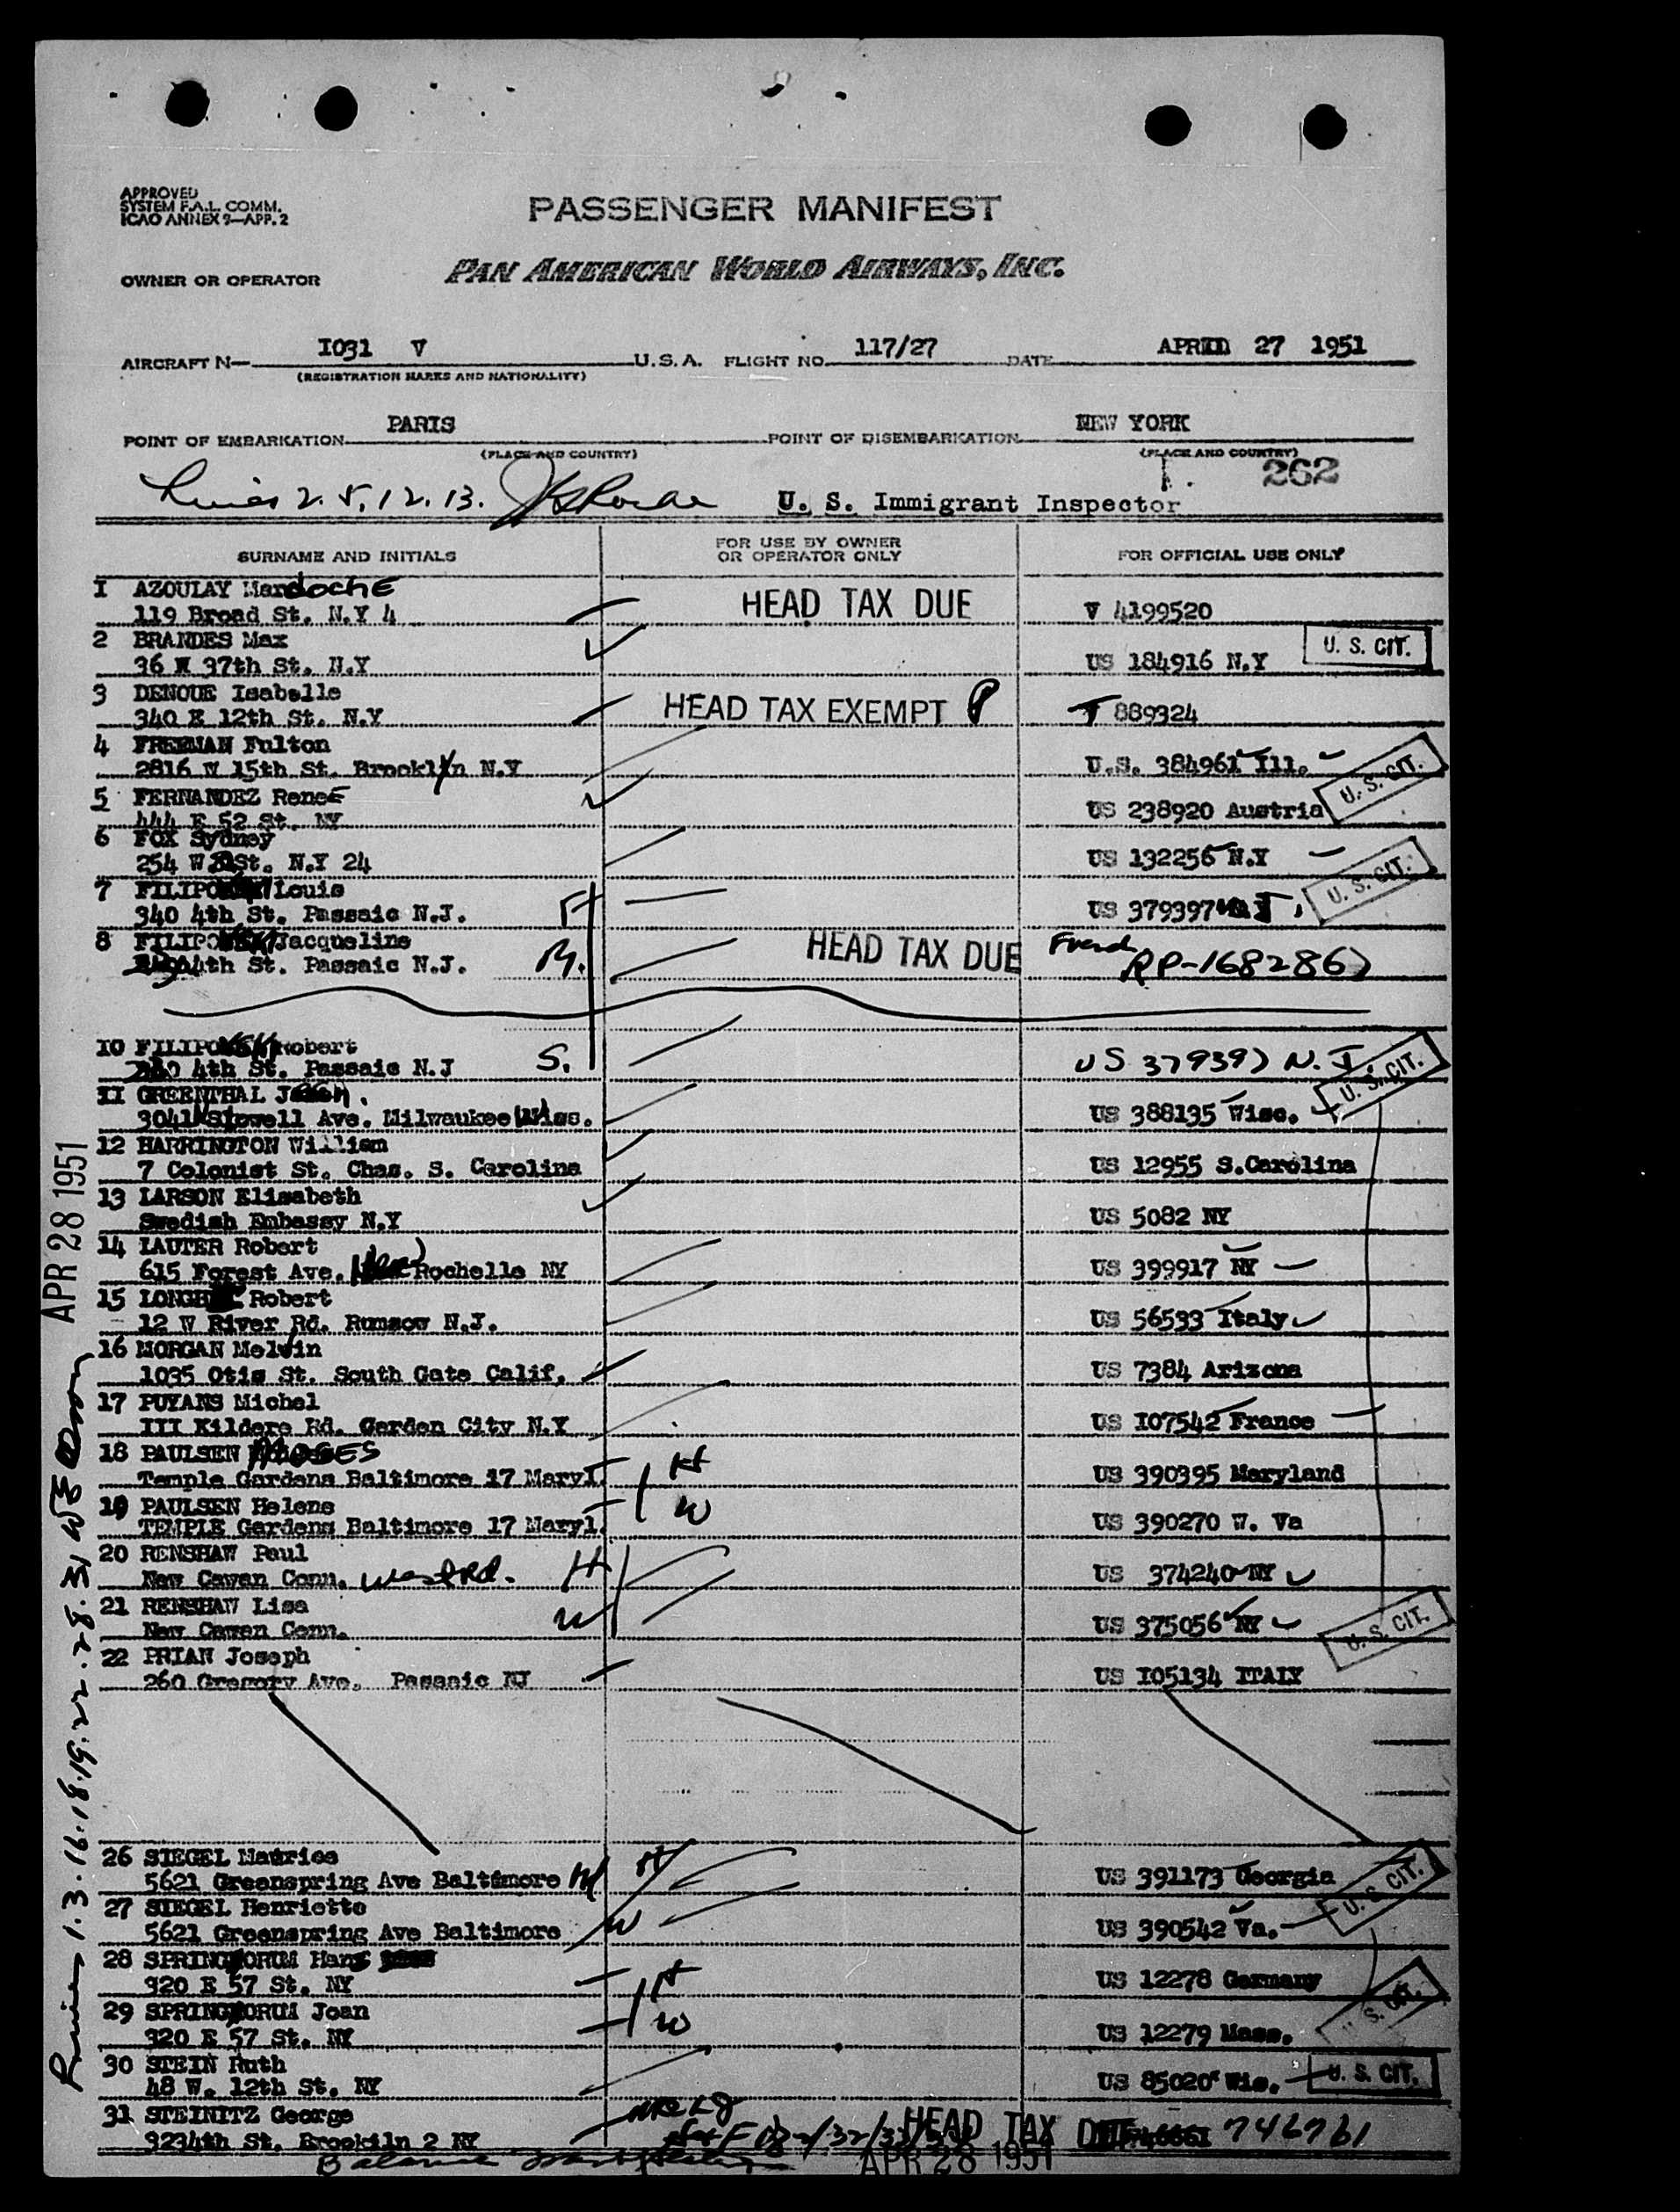 APPROVED
SYSTEM F.A.L. COMM.
ICAO ANNEX 9—APP. 2
PASSENGER MANIFEST
OWNER OR OPERATOR PAN AMERICAN WORLD AIRWAYS, INC.
AIRCRAFT N— I031 V U.S.A. FLIGHT NO. 117/27 DATE APRIL 27 1951
(REGISTRATION MARKS AND NATIONALITY)
POINT OF EMBARKATION PARIS POINT OF DISEMBARKATION NEW YORK
(PLACE AND COUNTRY) (PLACE AND COUNTRY)
262
2. 5, 12. 13. U. S. Immigrant Inspector
SURNAME AND INITIALS FOR USE BY OWNER OR OPERATOR ONLY FOR OFFICIAL USE ONLY
1 AZOULAY MardochE
119 Broad St. N.Y 4 HEAD TAX DUE V 4199520
2 BRANDES Max
36 W 37th St. N.Y US 184916 N.Y U. S. CIT.
3 DENOUE Isabelle
340 E 12th St. N.Y HEAD TAX EXEMPT T 889324
4 FREEMAN Fulton
2816 W 15th St. Brooklyn N.Y U.S. 384961 Ill. U. S. CIT.
5 FERNANDEZ ReneE
444 E 52 St. NY US 238920 Austria
6 FOX Sydney
254 W St. N.Y 24 US 132256 N.Y U. S. CIT.
7 Louis
340 4th St. Passaic N.J. US 379397
8 Jacqueline HEAD TAX DUE French
4th St. Passaic N.J. RP-1682867
10 Robert
4th St. Passaic N.J S. US 379397 N.J. U. S. CIT.
II GREENTHAL
3041 Stowell Ave. Milwaukee Wiss. US 388135 Wisc.
12 HARRINGTON William
7 Colonist St. Chas. S. Carolina US 12955 S.Carolina
13 LARSON Elisabeth
Swedish Embassy N.Y US 5082 NY
14 LAUTER Robert
615 Forest Ave. New Rochelle NY US 399917 NY
15 Robert
12 W River Rd. Rumsow N.J. US 56533 Italy
16 MORGAN Melvin
1035 Otis St. South Gate Calif. US 7384 Arizona
17 PUYANS Michel
III Kildere Rd. Garden City N.Y US I07542 France
18 PAULSEN MOSES
Temple Gardens Baltimore 17 Maryl. H US 390395 Maryland
19 PAULSEN Helene
TEMPLE Gardens Baltimore 17 Maryl. W US 390270 W. Va
20 RENSHAW Paul
New Cawan Conn. West Rd. H US 374240 NY
21 RENSHAW Lisa
New Cawan Conn. W US 375056 NY U. S. CIT.
22 PRIAN Joseph
260 Gregory Ave. Passaic NJ US I05134 ITALY
26 SIEGEL Maurice
5621 Greenspring Ave Baltimore H US 391173 Georgia U. S. CIT.
27 SIEGEL Henriette
5621 Greenspring Ave Baltimore W US 390542 Va.
28 Hans
320 E 57 St. NY H US 12278 Germany
29 Joan
320 E 57 St. NY W US 12279 Mass. U. S. CIT.
30 STEIN Ruth
48 W. 12th St. NY US 85020 Wis. U. S. CIT.
31 STEINITZ George
3234th St. Brookiln 2 NY HEAD TAX 746761
APR 28 1951
APR 28 1951
1. 3. 16. 18. 19. 22. 28. 31